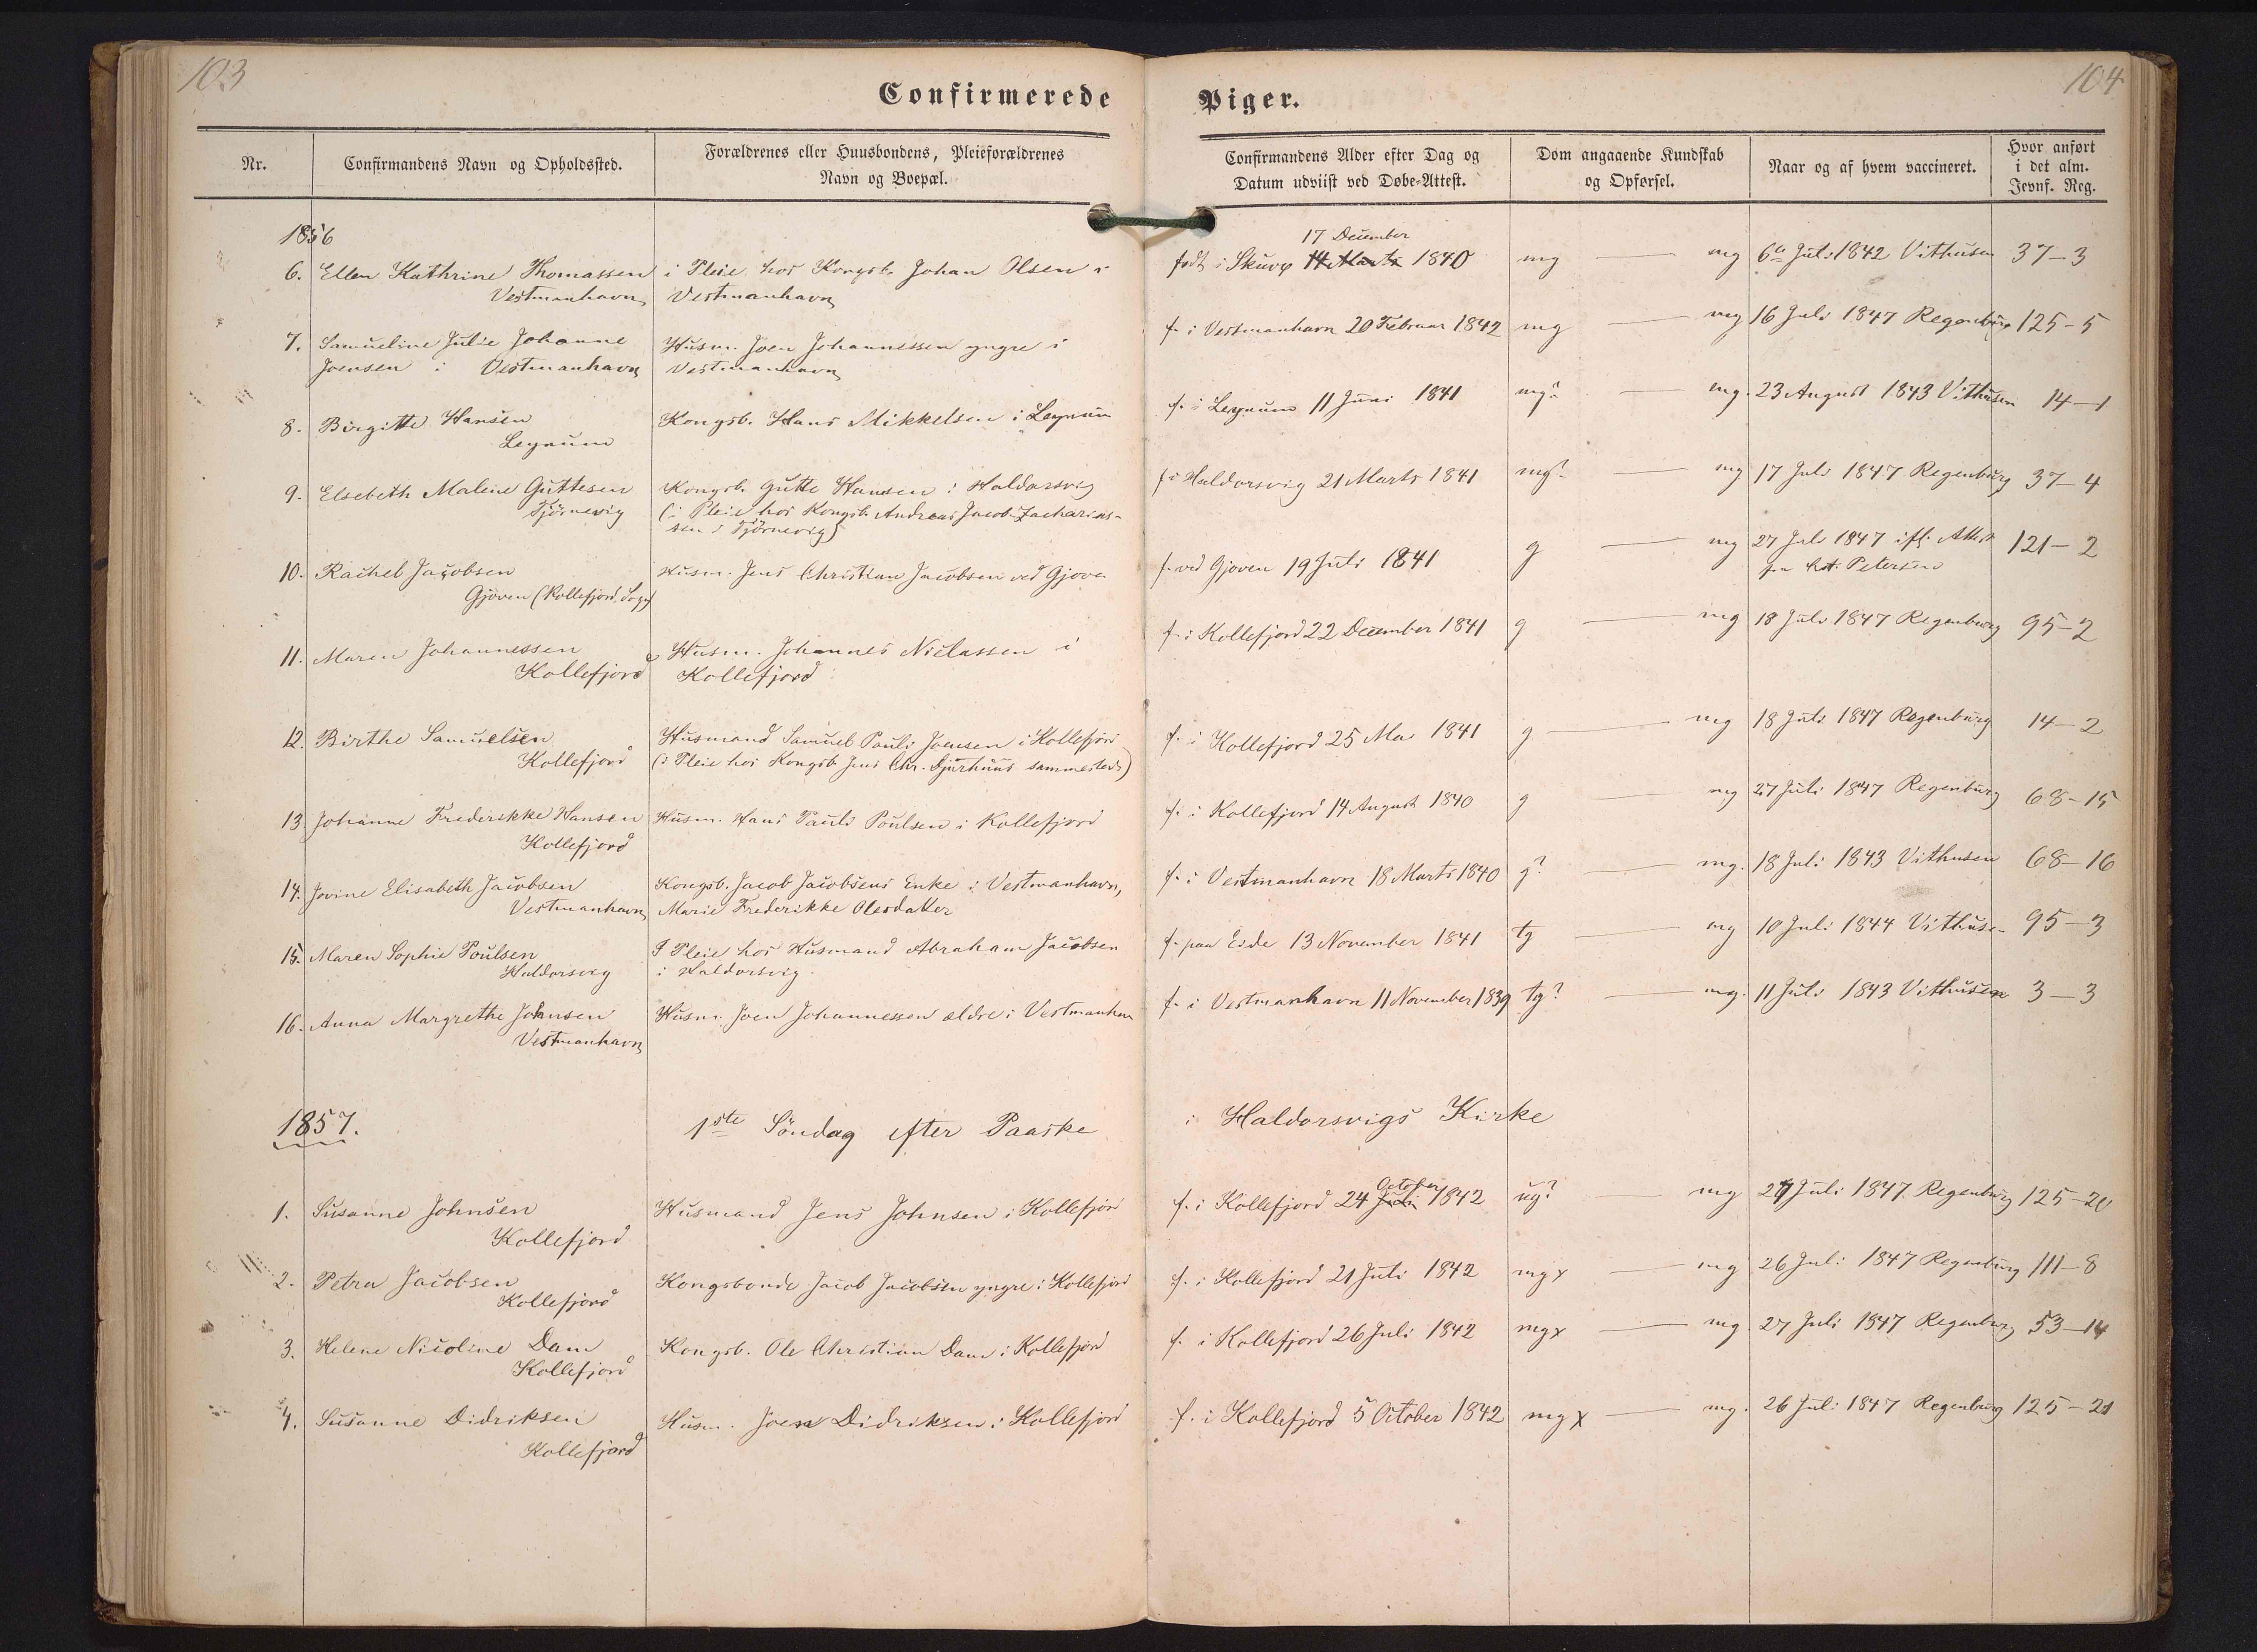 103
104
Confirmerede Piger.
Nr.
Confirmandens Navn og Opholdssted.
Forældrenes eller Huusbondens, Pleieforældrenes
Navn og Boepæl.
Confirmandens Alder efter Dag og
Datum udviist ved Døbe-Attest.
Dom angaaende Kundskab
og Opførsel.
Naar og af hvem vaccineret.
Hvor anført
i det alm.
Jevnf. Reg.
1856
17 December
6. Ellen Kathrine Thomassen i Pleie hos Kongsb. Johan Olsen i født i Skuvø 14 Marts 1840 mg — mg 6te Juli 1842 Vithusen 37-3
Vestmanhavn Vestmanhavn
7. Samueline Julie Johanne Husm. Joen Johannessen yngre i f. i Vestmanhavn 20 Februar 1842 mg — mg 16 Juli 1847 Regenburg 125-5
Joensen i Vestmanhavn Vestmanhavn
8. Birgitte Hansen Kongsb. Hans Mikkelsen i Leynum f. i Leynum 11 Juni 1841 mg? — mg. 23 August 1843 Vithusen 14-1
Leynum
9. Elsebeth Malene Guttesen Kongsb. Gutte Hansen i Haldorsvig f i Haldorsvig 21 Marts 1841 mg? — mg 17 Juli 1847 Regenburg 37-4
Tjörnevig (i Pleie hos Kongsb. Andreas Jacob Zacharias-
sen i Tjörnevig)
10. Rachel Jacobsen Husm. Jens Christian Jacobsen ved Gjoven f. ved Gjoven 19 Juli 1841 g — mg 27 Juli 1847 ifl. Attest 121-2
Gjöven (Kollefjord Sogn) fra Petersen
11. Maren Johannessen Husm. Johannes Niclassen i f. i Kollefjord 22 December 1841 g — mg 18 Juli 1847 Regenburg 95-2
Kollefjord Kollefjord
12. Birthe Samuelsen Husmand Samuel Pauli Joensen i Kollefjord f. i Kollefjord 25 Mai 1841 g — mg 18 Juli 1847 Regenburg 14-2
Kollefjord (i Pleie hos Kongsb. Jens Chr. Djurhuus sammesteds)
13 Johanne Frederikke Hansen Husm. Hans Pauli Poulsen i Kollefjord f. i Kollefjord 14 August 1840 g — mg 27 Juli 1847 Regenburg 68-15
Kollefjord
14. Jovine Elisabeth Jacobsen Kongsb. Jacob Jacobsens Enke i Vestmanhavn, f. i Vestmanhavn 18 Marts 1840 g? — mg. 18 Juli 1843 Vithusen 68-16
Vestmanhavn Marie Frederikke Olesdatter
15. Maren Sophie Poulsen I Pleie hos Husmand Abraham Jacobsen f. paa Eide 13 November 1841 tg — mg 10 Juli 1844 Vithusen 95-3
Haldorsvig i Haldorsvig.
16. Anna Margrethe Johnsen Husm. Joen Johannessen ældre i Vestmanhavn f. i Vestmanhavn 11 November 1839 tg? — mg. 11 Juli 1843 Vithusen 3-3
Vestmanhavn
1857. 1ste Söndag efter Paaske i Haldorsvigs Kirke
October
1. Susanne Johnsen Husmand Jens Johnsen i Kollefjord f. i Kollefjord 24 Juli 1842 ug? — mg 27 Juli 1847 Regenburg 125-20
Kollefjord
2. Petra Jacobsen Kongsbonde Jacob Jacobsen yngre i Kollefjord f. i Kollefjord 21 Juli 1842 mgx — mg 26 Juli 1847 Regenburg 111-8
Kollefjord
3. Helene Nicoline Dam Kongsb. Ole Christian Dam i Kollefjord f. i Kollefjord 26 Juli 1842 mgx — mg. 27 Juli 1847 Regenburg 53-14
Kollefjord
4. Susanne Didriksen Husm. Joen Didriksen i Kollefjord f. i Kollefjord 5 October 1842 mgx — mg. 26 Juli 1847 Regenburg 125-21
Kollefjord